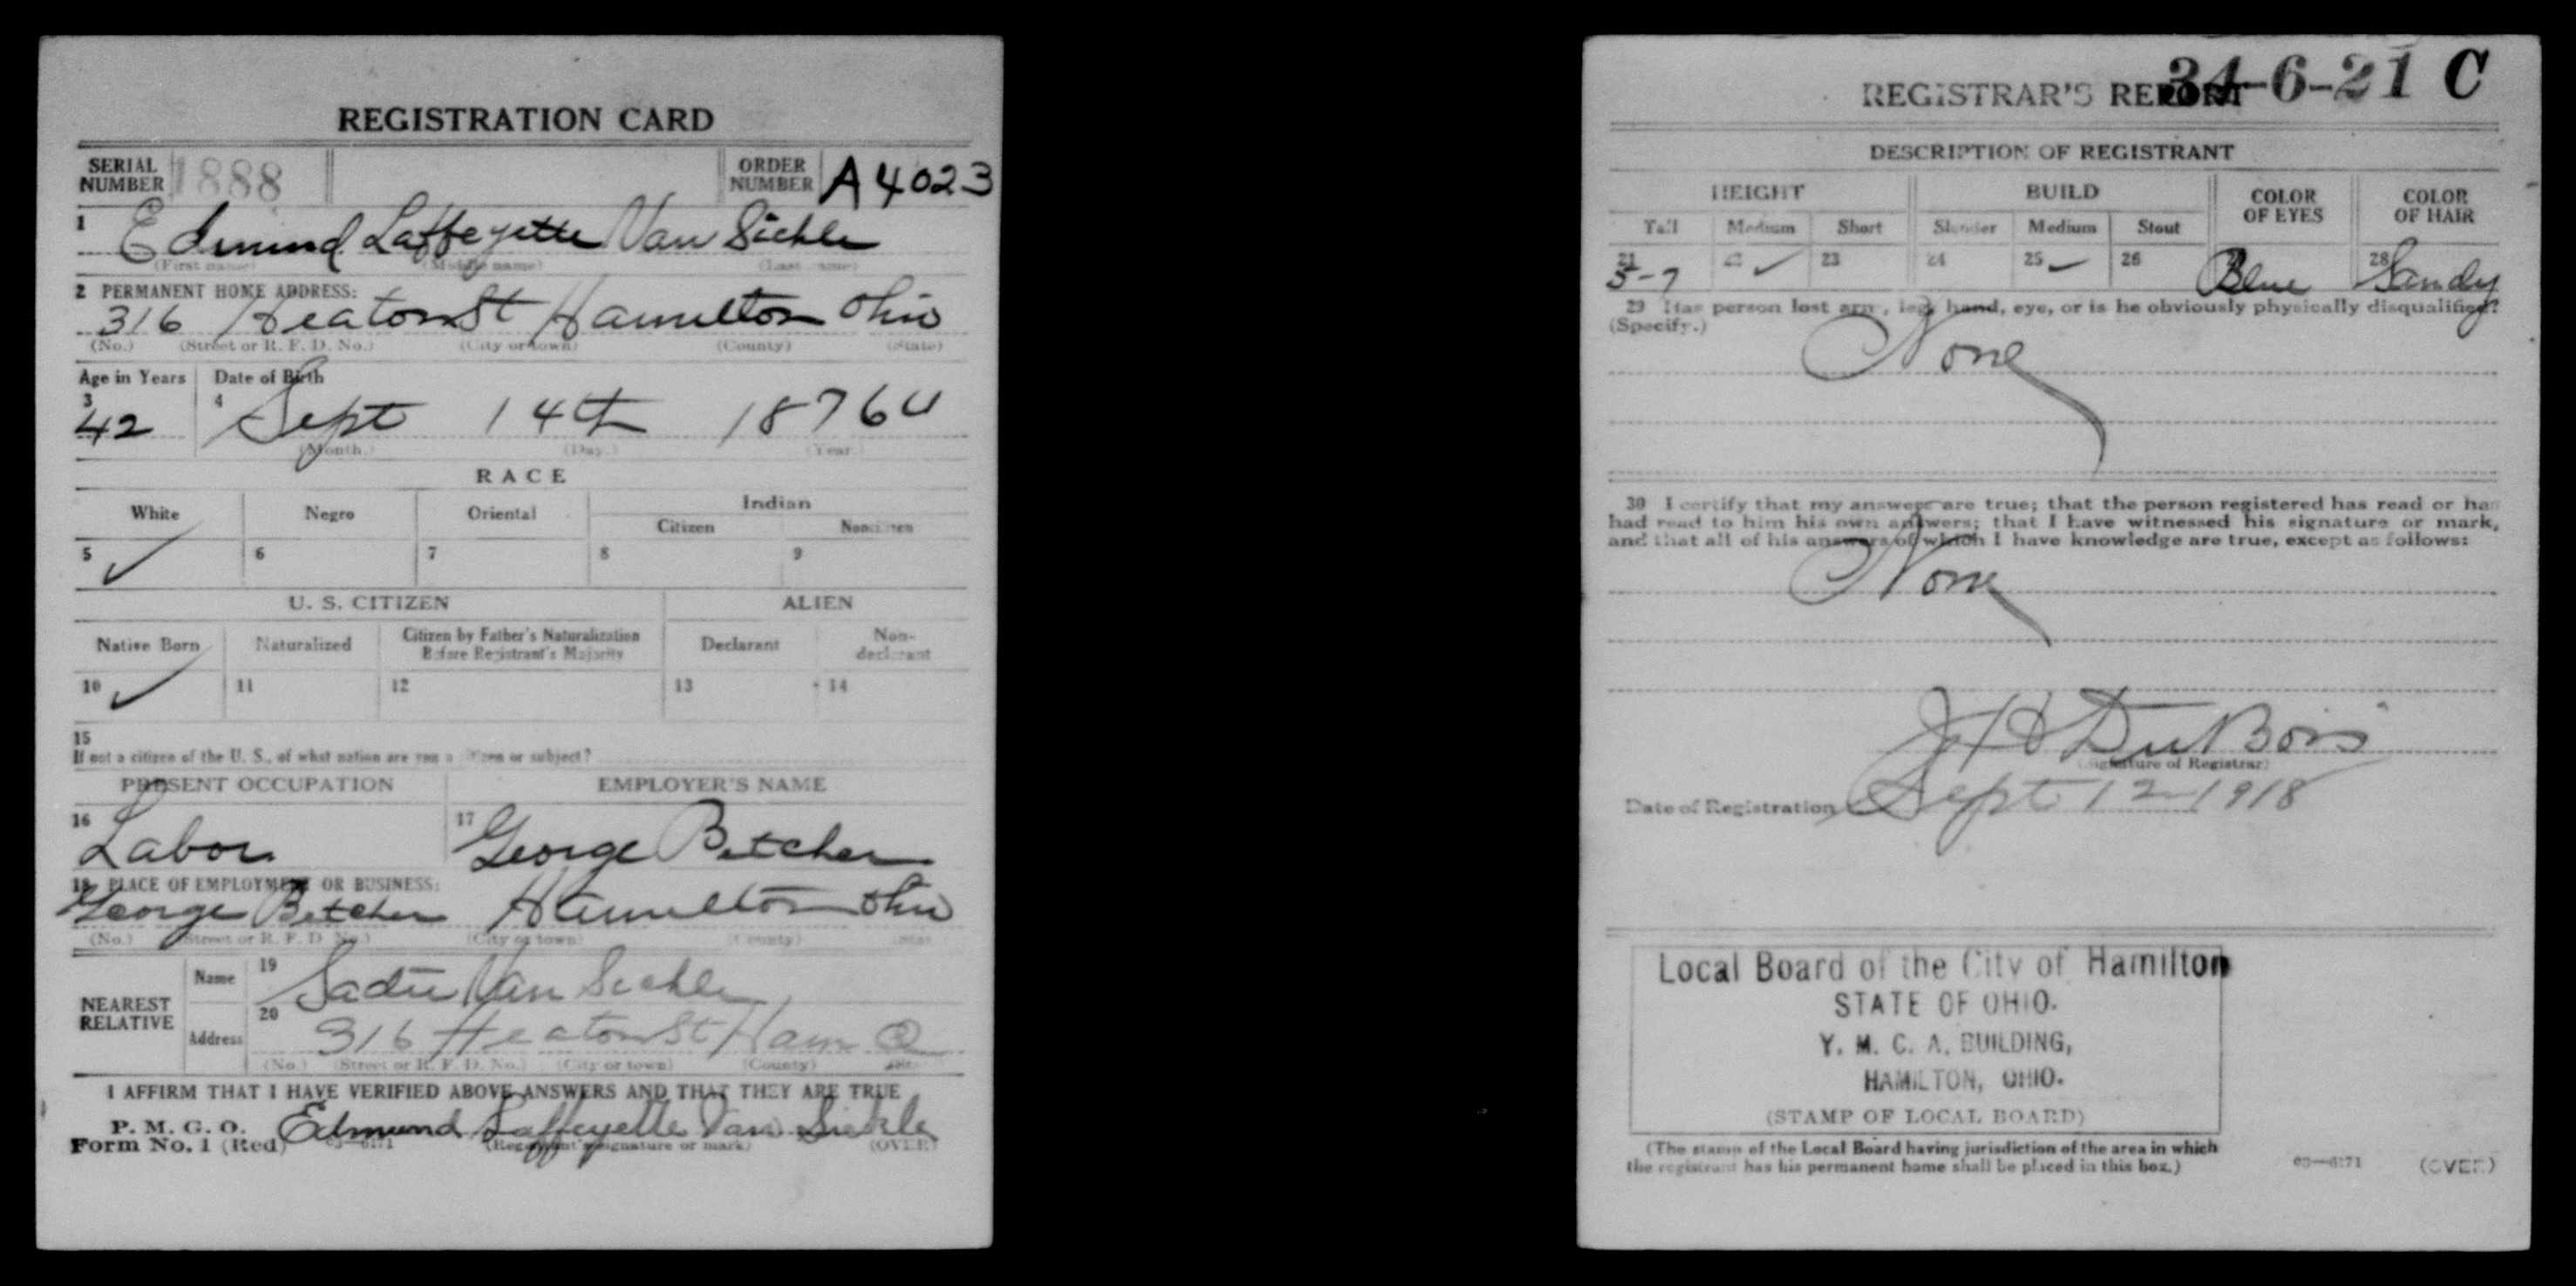 REGISTRATION CARD
SERIAL NUMBER 1888 ORDER NUMBER A4023
1 Edmund Laffeyette Van Sickle
(First name) (Middle name) (Last name)
2 PERMANENT HOME ADDRESS:
316 Heaton St Hamilton Ohio
(No.) (Street or R. F. D. No.) (City or town) (County) (State)
Age in Years Date of Birth
3 42 4 Sept 14th 1876
(Month.) (Day.) (Year.)
RACE
White Negro Oriental Indian
Citizen Noncitizen
5 ✓ 6 7 8 9
U. S. CITIZEN ALIEN
Native Born Naturalized Citizen by Father's Naturalization Before Registrant's Majority Declarant Non-declarant
10 ✓ 11 12 13 14
15
If not a citizen of the U. S., of what nation are you a citizen or subject?
PRESENT OCCUPATION EMPLOYER'S NAME
16 Labor 17 George Betcher
18 PLACE OF EMPLOYMENT OR BUSINESS:
George Betcher Hamilton Ohio
(No.) (Street or R. F. D. No.) (City or town) (County) (State)
NEAREST RELATIVE
Name 19 Sadie Van Sickle
Address 20 316 Heaton St Ham O
(No.) (Street or R. F. D. No.) (City or town) (County) (State)
I AFFIRM THAT I HAVE VERIFIED ABOVE ANSWERS AND THAT THEY ARE TRUE
P. M. G. O.
Form No. 1 (Red) 03—6171 Edmund Laffeyette Van Sickle
(Registrant's signature or mark) (OVER)
34-6-21 C
REGISTRAR'S REPORT
DESCRIPTION OF REGISTRANT
HEIGHT BUILD COLOR OF EYES COLOR OF HAIR
Tall Medium Short Slender Medium Stout
21 5-7 22 ✓ 23 24 25 ✓ 26 Blue 28 Sandy
29 Has person lost arm, leg, hand, eye, or is he obviously physically disqualified?
(Specify.)
None
30 I certify that my answers are true; that the person registered has read or has
had read to him his own answers; that I have witnessed his signature or mark,
and that all of his answers of which I have knowledge are true, except as follows:
None
J H DuBois
(Signature of Registrar)
Date of Registration Sept 12 1918
Local Board of the City of Hamilton
STATE OF OHIO.
Y. M. C. A. BUILDING,
HAMILTON, OHIO.
(STAMP OF LOCAL BOARD)
(The stamp of the Local Board having jurisdiction of the area in which
the registrant has his permanent home shall be placed in this box.)
03—6171 (OVER)